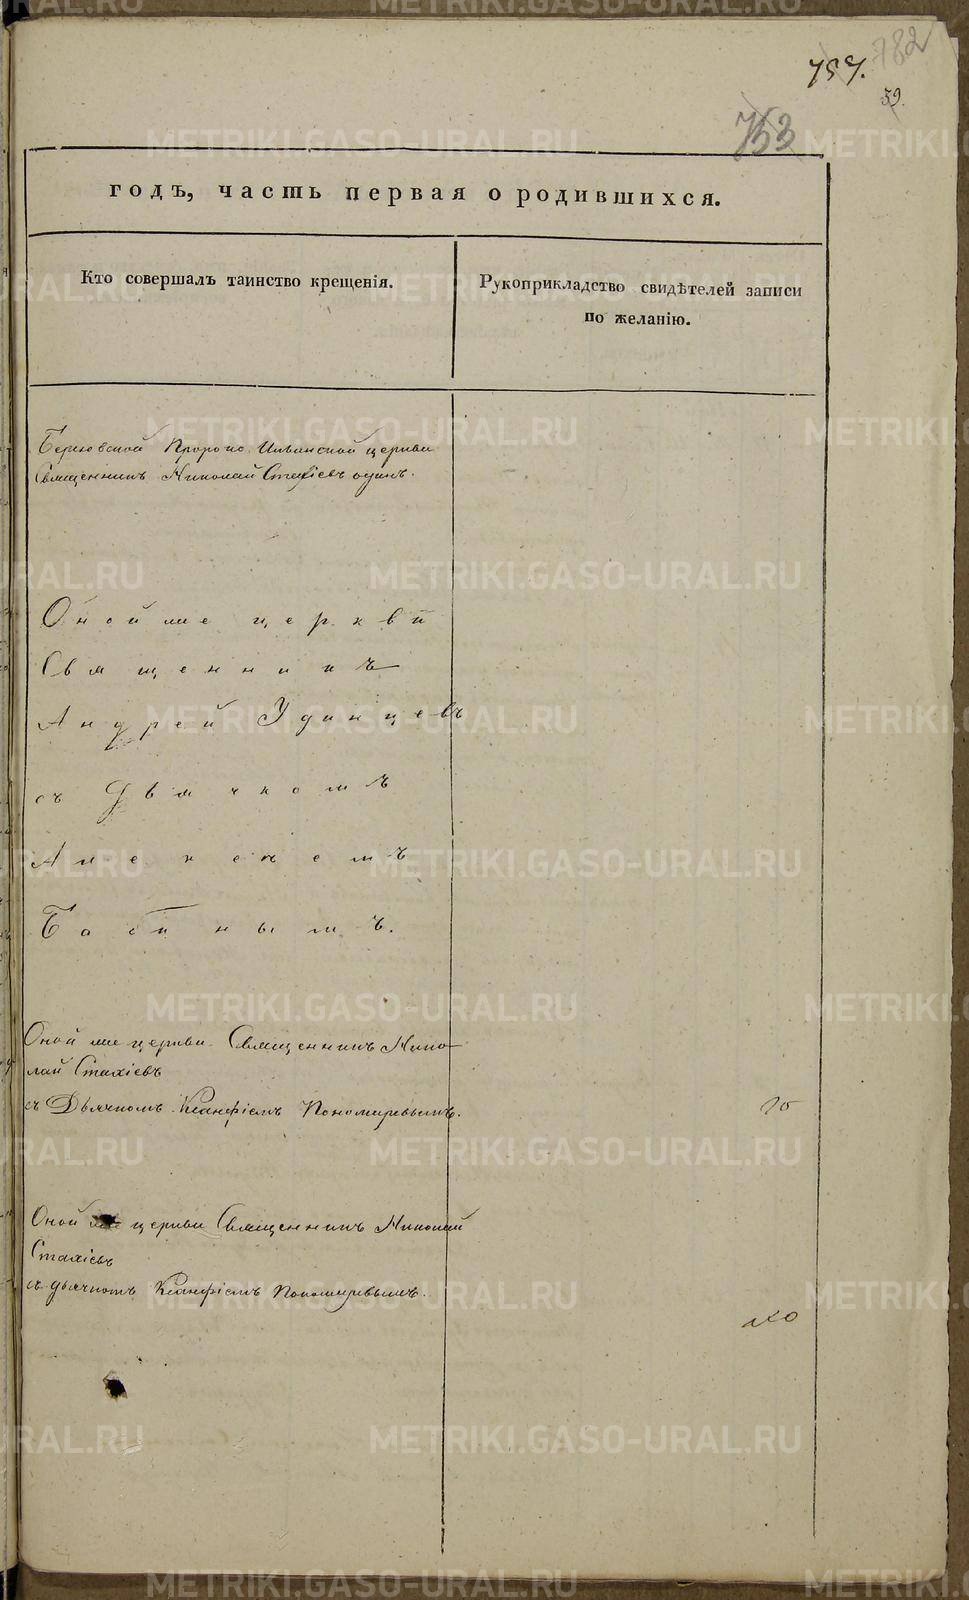 782
757.
59.
753
годъ, часть первая о родившихся.
Кто совершалъ таинство крещенія.
Рукоприкладство свидѣтелей записи
по желанію.
Пророко Ильинской церкви
Священникъ Николай Стахіевъ одинъ.
Оной же церкви
Священникъ
Андрей Удинцевъ
съ Дьячкомъ
Алексеемъ
Оной же церкви Священникъ Нико-
лай Стахіевъ
съ Дьячкомъ Ксанфіемъ Пономаревымъ.
Оной же церкви Священникъ Николай
Стахіевъ
съ дьячкомъ Ксанфіемъ Пономаревымъ.
METRIKI.GASO-URAL.RU